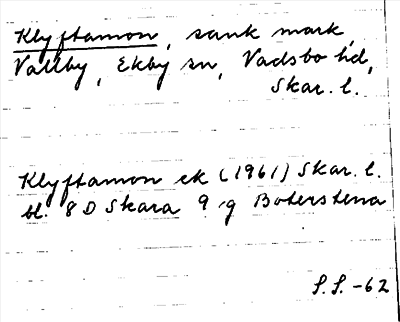 Klyftamon, sank mark,
Vallby, Ekby sn, Vadsbo hd,
Skar. l.
Klyftamon ek (1961) Skar. l.
bl. 8 D Skara 9 g Boterstena
S.S.-62